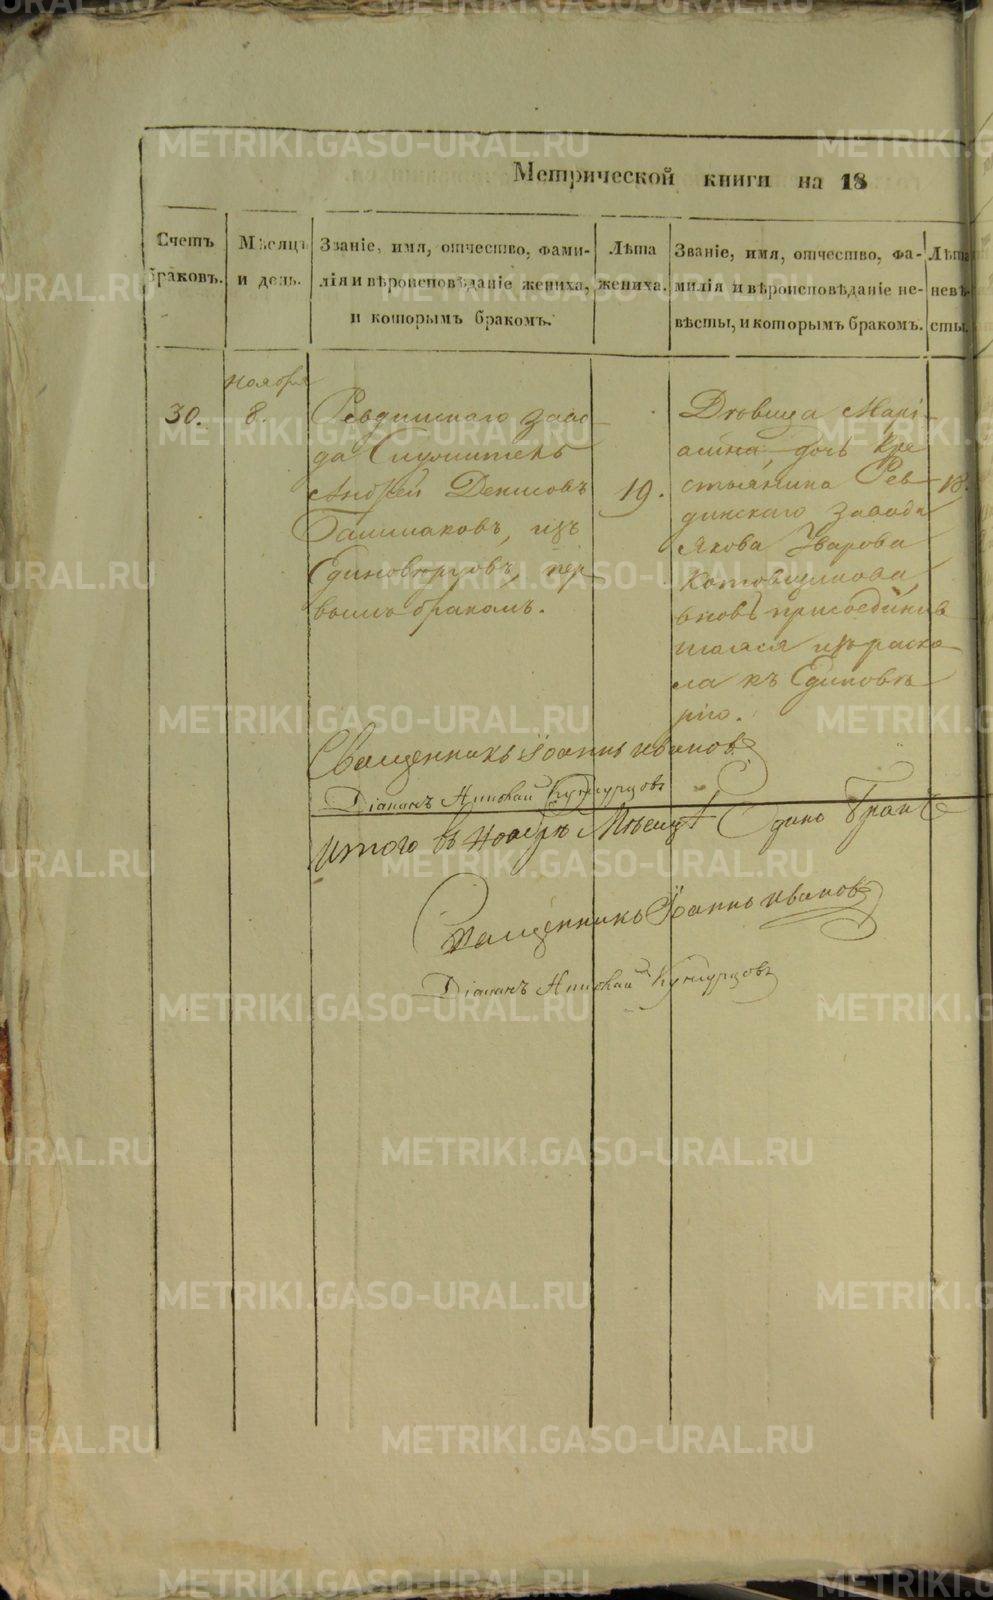 METRIKI.GASO-URAL.RU
Метрической книги на 18
Счетъ браковъ.
Мѣсяцъ и день.
Званіе, имя, отчество, фами-
лія и вѣроисповѣданіе жениха,
и которымъ бракомъ.
Лѣта
жениха.
Званіе, имя, отчество, фа-
милія и вѣроисповѣданіе не-
вѣсты, и которымъ бракомъ.
Лѣта
невѣ-
сты.
30.
Ноября
8.
Ревдинскаго Заво
да Служитель
Андрей Денисовъ
из
Единовѣрцовъ, пер
вымъ бракомъ.
19.
Дѣвица Марі
дочь Кре
стьянина Рев
динскаго Завода
Якова Уварова
вновь присоединив
шаяся изъ раско
ла къ Единовѣ
рію.
18.
Священникъ Іоаннъ Ивановъ
Діаконъ Николай Кунгурцовъ
Итого въ Ноябрѣ Мѣсяцѣ Единъ Бракъ
Священникъ Іоаннъ Ивановъ
Діаконъ Николай Кунгурцовъ